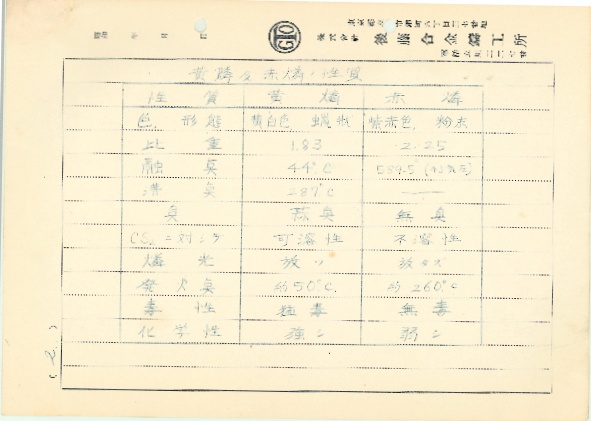 昭和 年 月 日
株式会社 後藤合金鋳工所
黄燐及赤燐ノ性質
性質 黄燐 赤燐
色、形態 黄白色 蝋状 紫赤色、粉末
比重 1.83 2.25
融点 44°C 589.5 (43気圧)
沸点 287°C ―
臭 蒜臭 無臭
CS₂ニ対シテ 可溶性 不溶性
燐光 放ツ 放タズ
発火点 約50°C. 約260°C
毒性 猛毒 無毒
化学性 強シ 弱シ